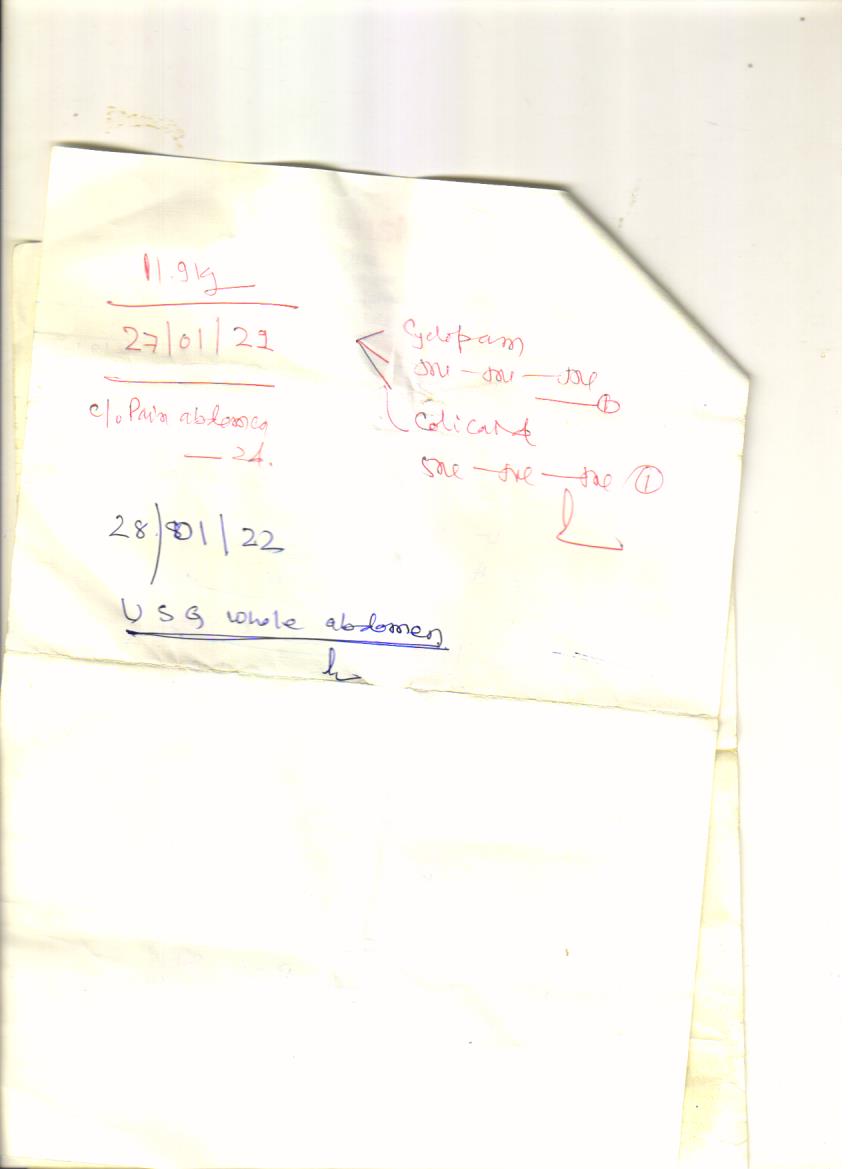 11.9kg
27/01/22
c/o Pain abdomen
— 2d.
Cyclopam
5ml — 5ml — 5ml
Colicaid
5ml — 5ml — 5ml ①
28/01/22
USG whole abdomen